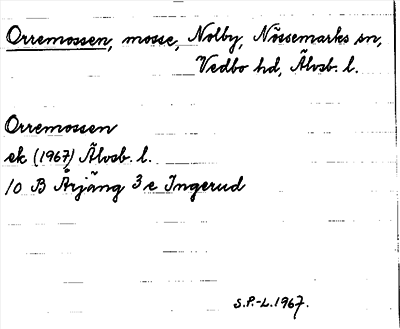 Orremossen, mosse, Nolby, Nössemarks sn,
Vedbo hd, Älvsb. l.
Orremossen
ek (1967) Älvsb. l.
10 B Årjäng 3e Ingerud
S.P.-L. 1967.